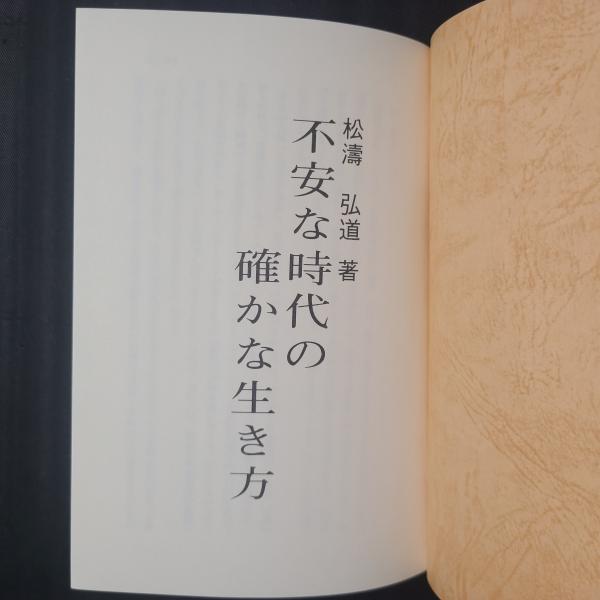 松濤 弘道 著
不安な時代の
確かな生き方